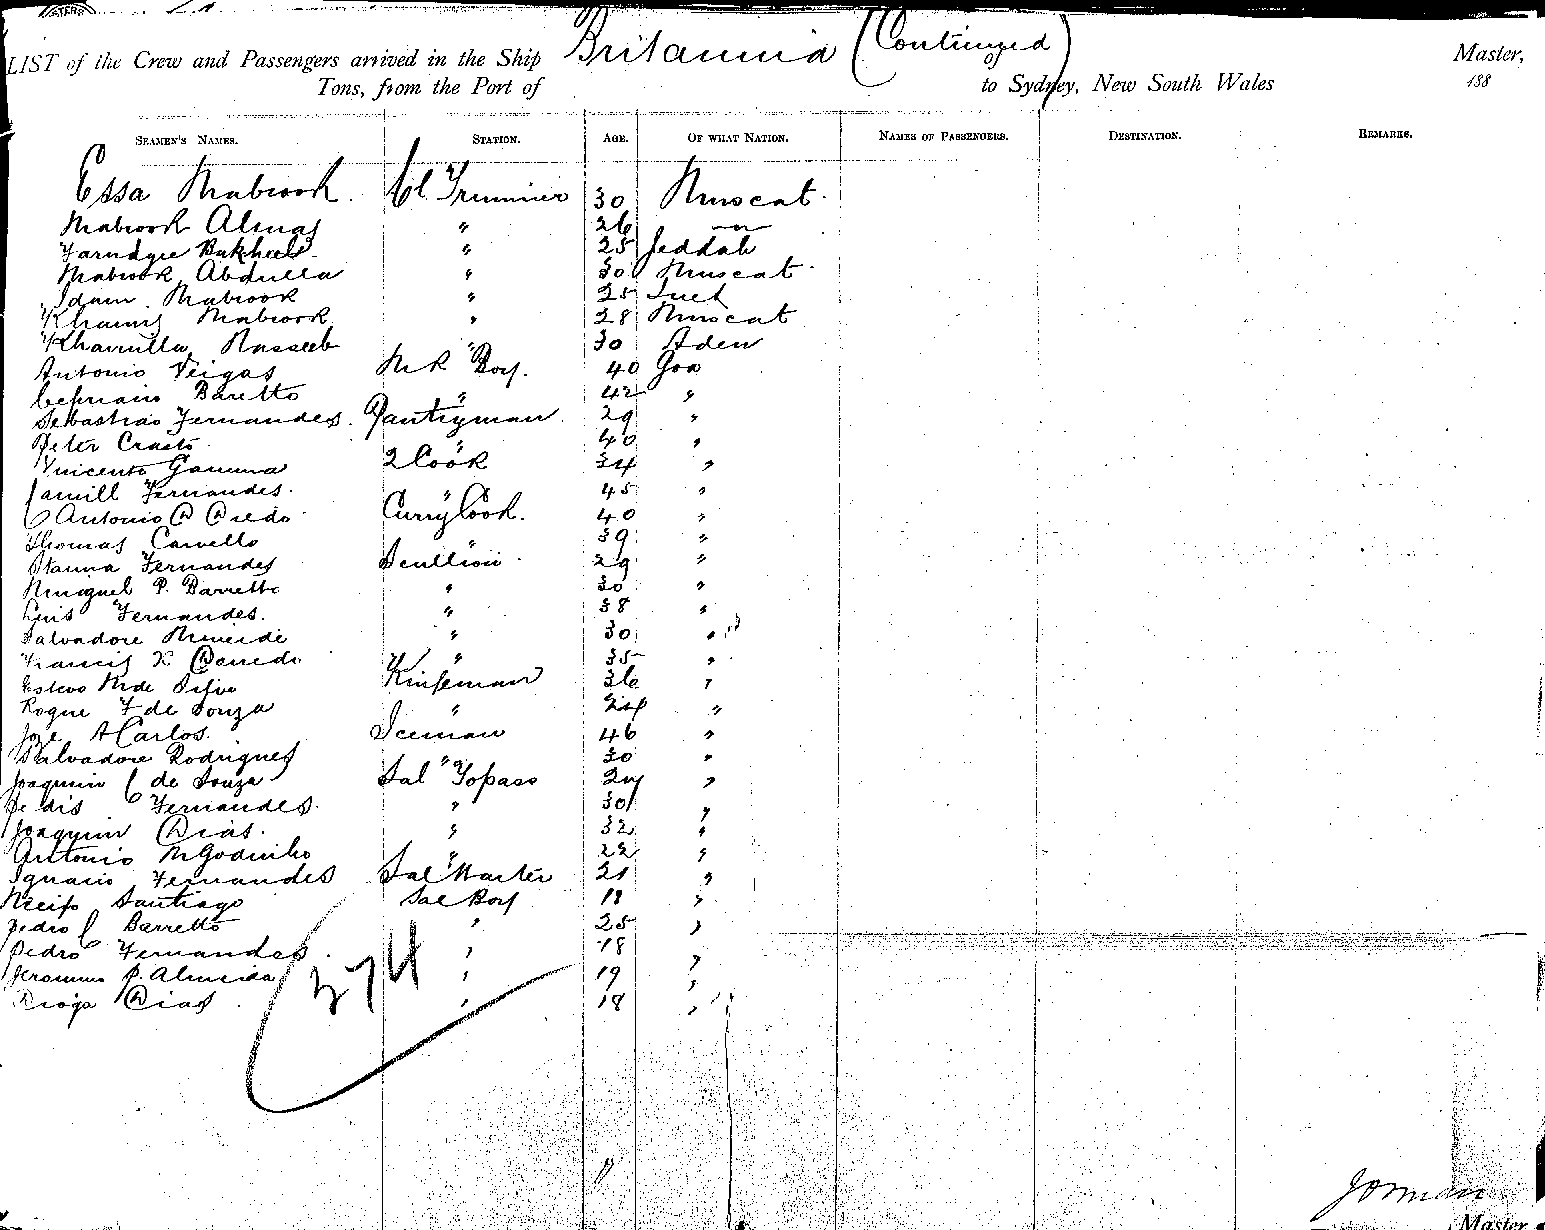 LIST of the Crew and Passengers arrived in the Ship Britannia (Continued) of Master,
Tons, from the Port of to Sydney, New South Wales 188
SEAMEN'S NAMES. STATION. AGE. OF WHAT NATION. NAMES OF PASSENGERS. DESTINATION. REMARKS.
Essa Mabrook. Cl Trimmer 30 Muscat.
Mabrook Almas " 26 "
Farudgee " 25 Jeddah
Mabrook Abdulla " 30 Muscat.
Idam Mabrook " 25 Suez
Khamis Mabrook " 28 Muscat
Khamilla Nasseeb " 30 Aden
Antonio Veigas M R Boy. 40 Goa
Cepriano Baretto " 42 "
Sebastiao Fernandes. Pantryman 29 "
Peter Crasto " 40 "
Vincente Gamma 2 Cook 34 "
Camill Fernandes. " " 45 "
Antonio D Credo Curry Cook. 40 "
Thomas Carvello " 39 "
Fernandes Scullion 29 "
Minguel P. Barretto " 30 "
Luis Fernandes. " 38 "
Salvadore " 30 "
Francis X " 35 "
Estevo M de Silva Knifeman 36 "
Roque F de Souza " 24 "
Joze A Carlos. Iceman 46 "
Salvadore Rodrigues " 30 "
Joaquim C de Souza Sal Topass 24 "
Pedis C Fernandes. " 30 "
Joaquim Dias. " 32 "
Antonio M Godinho " 22 "
Ignacio Fernandes Sal Waiter 21 "
Santiago Sal Boy 18 "
Pedro C Barretto " 25 "
Pedro Fernandes. " 18 "
P. Almeida " 19 "
Dias " 18 "
374
Master